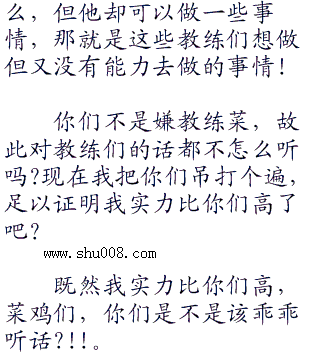 么，但他却可以做一些事
情，那就是这些教练们想做
但又没有能力去做的事情！
你们不是嫌教练菜，故
此对教练们的话都不怎么听
吗?现在我把你们吊打个遍，
足以证明我实力比你们高了
吧?
www.shu008.com
既然我实力比你们高，
菜鸡们，你们是不是该乖乖
听话?!!。